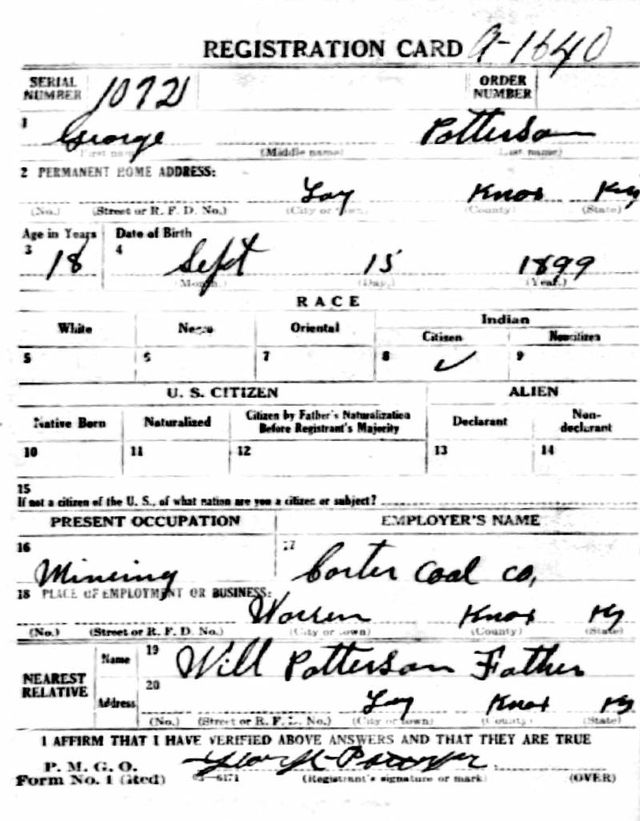 REGISTRATION CARD A-1640
SERIAL NUMBER 1072 ORDER NUMBER
1 George Patterson
(First name) (Middle name) (Last name)
2 PERMANENT HOME ADDRESS:
Lay Knox Ky
(No.) (Street or R. F. D. No.) (City or town) (County) (State)
Age in Years Date of Birth
3 18 4 Sept 15 1899
(Month.) (Day.) (Year.)
RACE
White Negro Oriental Indian
Citizen Noncitizen
5 6 7 8 ✓ 9
U. S. CITIZEN ALIEN
Native Born Naturalized Citizen by Father's Naturalization Before Registrant's Majority Declarant Non-declarant
10 11 12 13 14
15
If not a citizen of the U. S., of what nation are you a citizen or subject?
PRESENT OCCUPATION EMPLOYER'S NAME
16 Mineing 17 Carter Coal Co,
18 PLACE OF EMPLOYMENT OR BUSINESS:
Warren Knox Ky
(No.) (Street or R. F. D. No.) (City or town) (County) (State)
NEAREST RELATIVE Name 19 Will Patterson Father
Address 20 Lay Knox Ky
(No.) (Street or R. F. D. No.) (City or town) (County) (State)
I AFFIRM THAT I HAVE VERIFIED ABOVE ANSWERS AND THAT THEY ARE TRUE
P. M. G. O.
Form No. 1 (Red) 03-6171 (Registrant's signature or mark) (OVER)